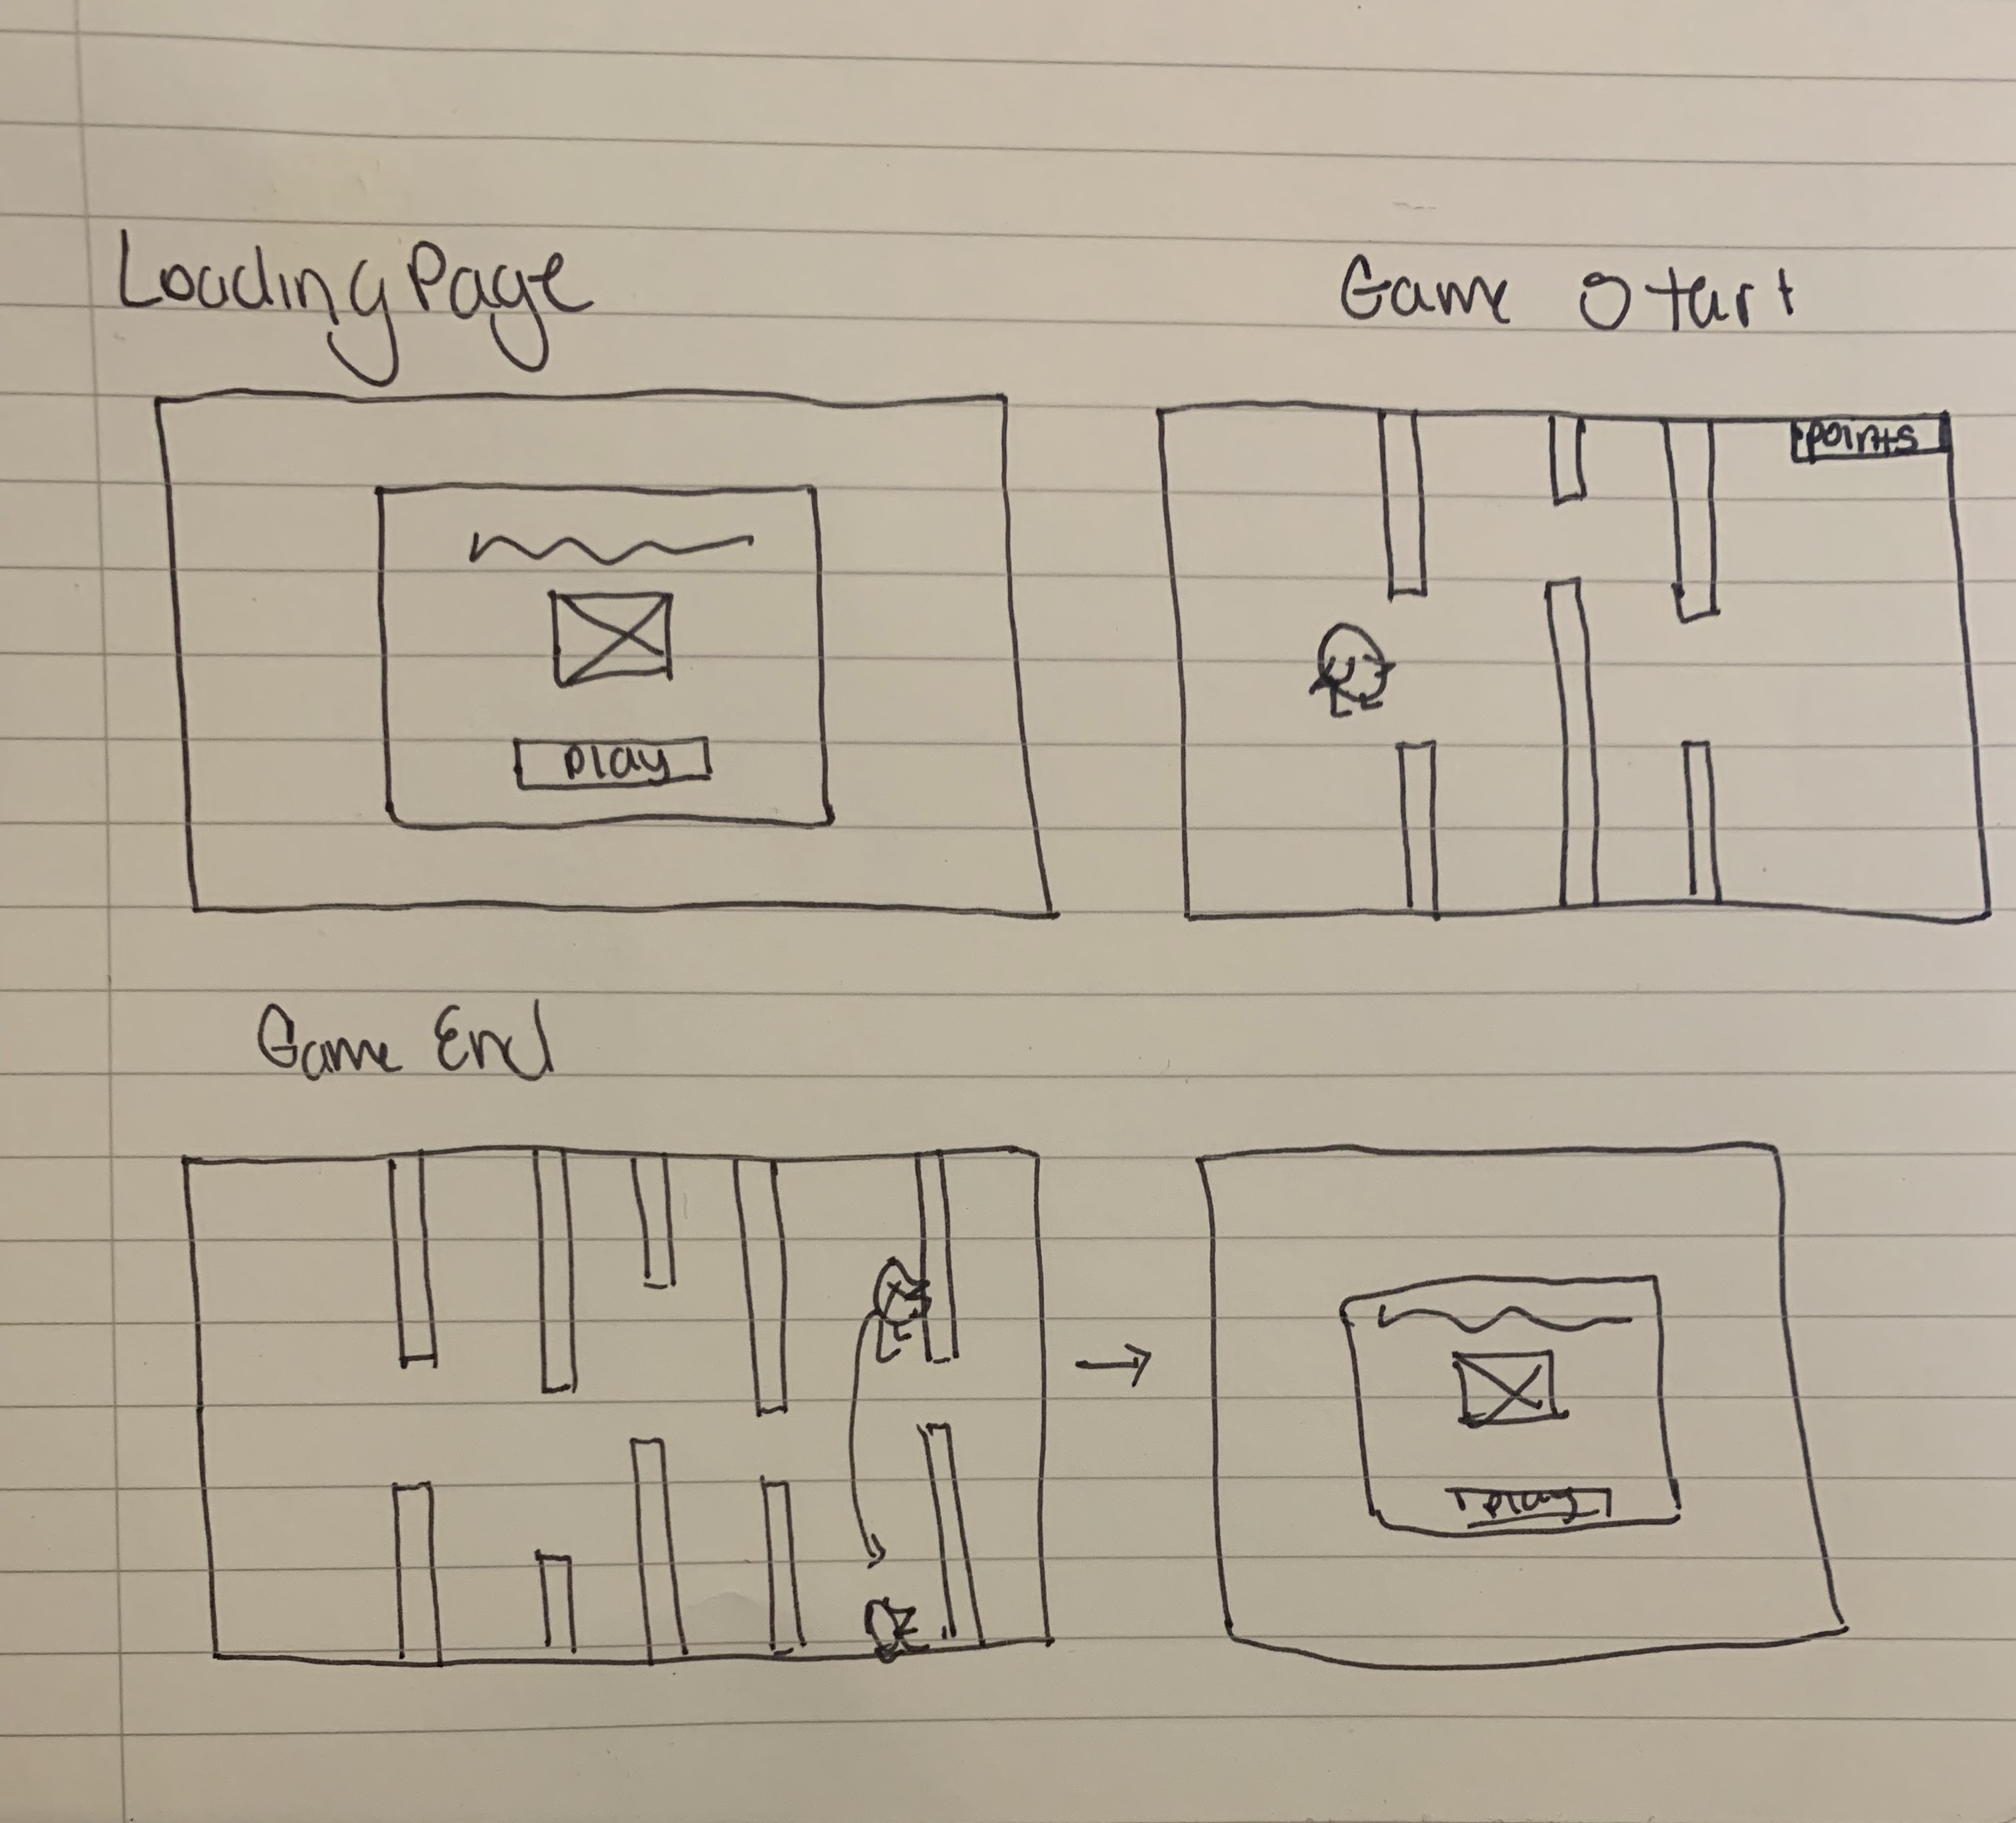 Loading Page
Game Start
points
play
Game End
play